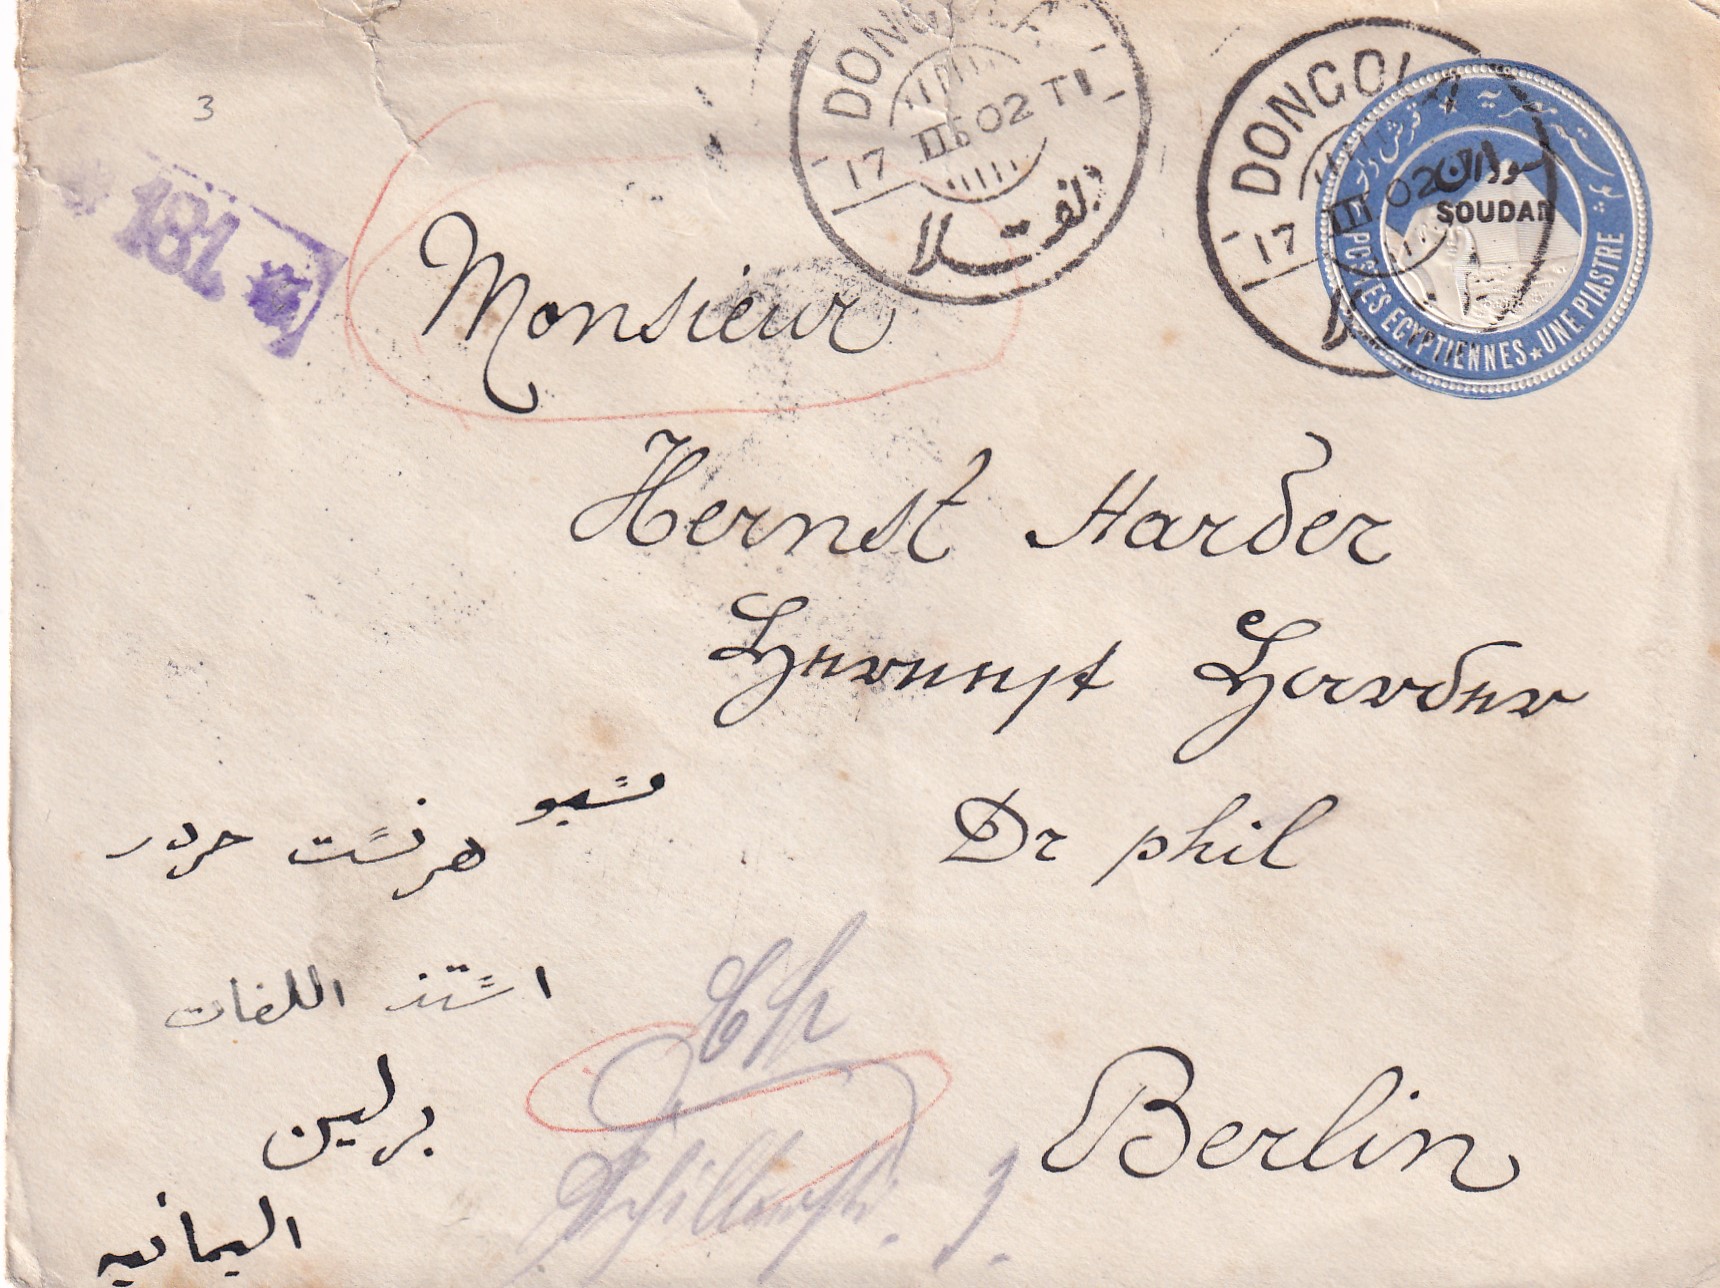 3
181
DONGOLA
17 III 02 T1
دنقلا
DONGOLA
17 III 02
سودان
SOUDAN
POSTES EGYPTIENNES ★ UNE PIASTRE
Monsieur
Hernst Harder
Hernnst Harder
Dr phil
مسيو
هرنست حردر
استذ اللغات
برلين
اليمانيه
Berlin